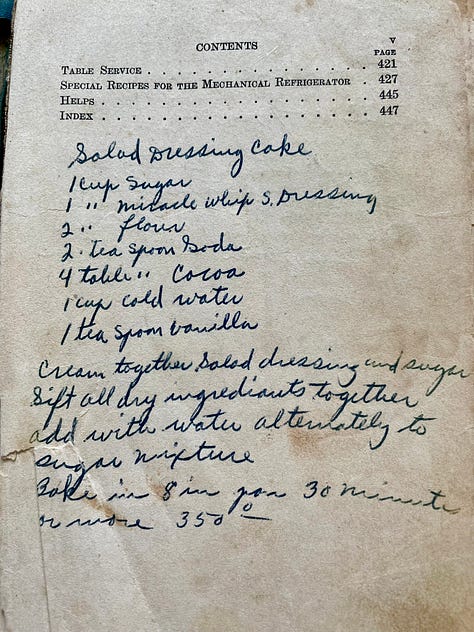 CONTENTS
v
PAGE
Table Service . . . . . . . . . . . . . . . 421
Special Recipes for the Mechanical Refrigerator . 427
Helps . . . . . . . . . . . . . . . . . . 445
Index . . . . . . . . . . . . . . . . . . 447
Salad Dressing Cake
1 cup Sugar
1 " miracle whip S. Dressing
2 " flour
2 tea spoon Soda
4 table " Cocoa
1 cup cold water
1 tea spoon vanilla
Cream together Salad dressing and sugar
Sift all dry ingrediants together
add with water alternately to
sugar mixture
Bake in 8 in pan 30 minute
or more 350°